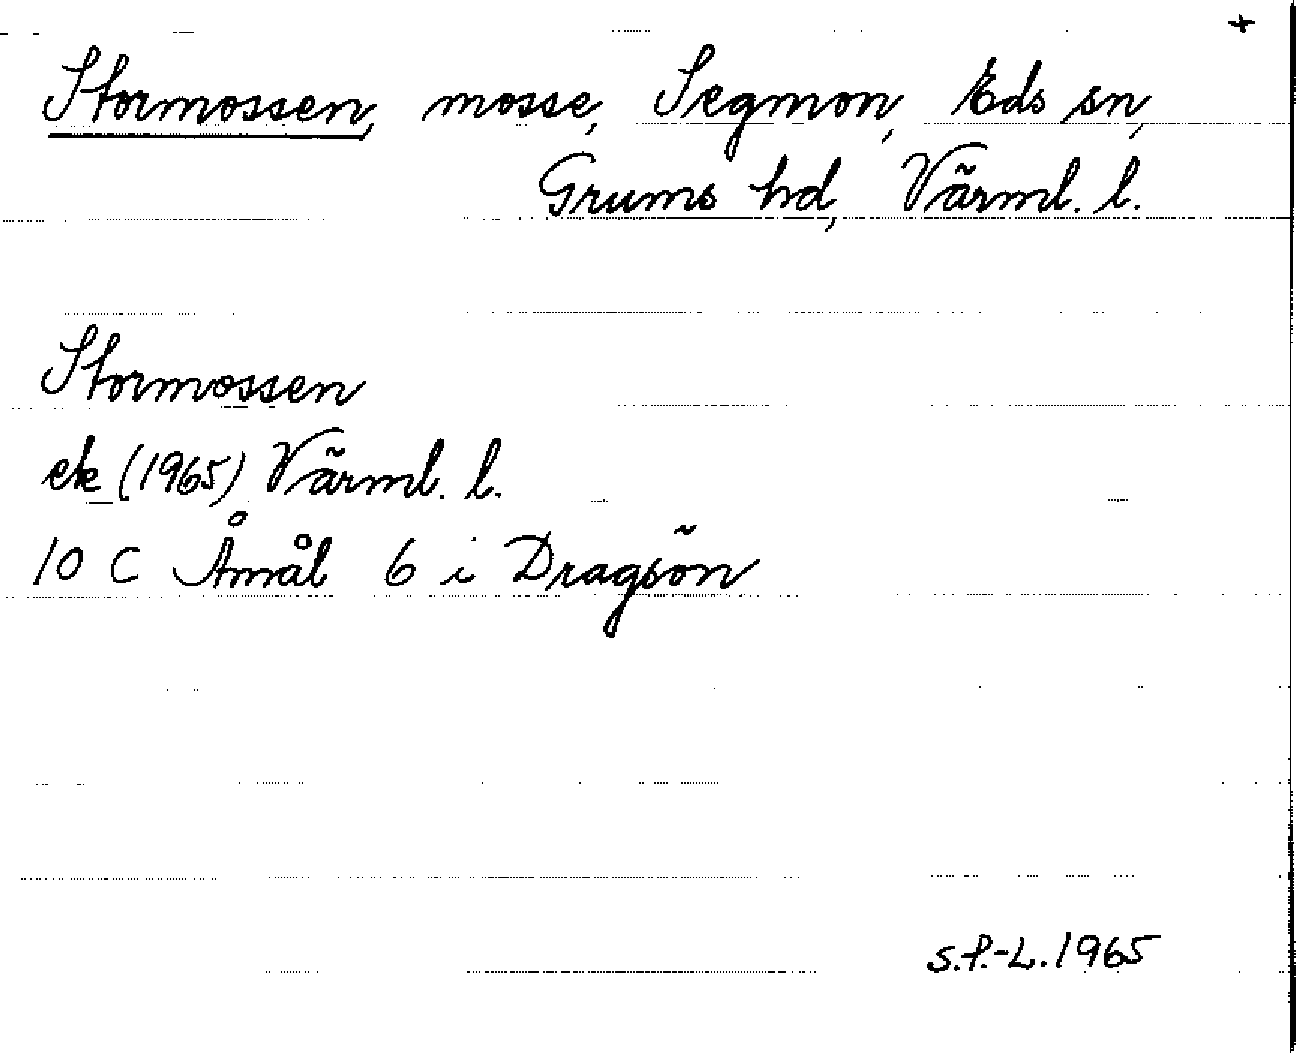 +
Stormossen, mosse, Segmon, Eds sn,
Grums hd, Värml. l.
Stormossen
ek (1965) Värml. l.
10 C Åmål 6 i Dragsön
S.F.-L. 1965